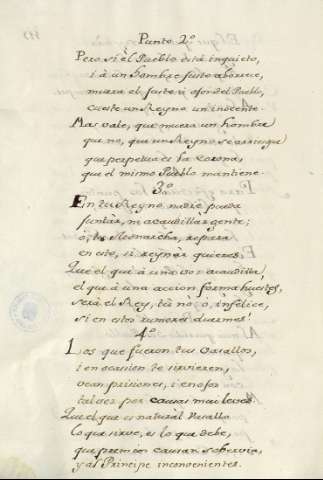 Punto 2º
Pero si el Pueblo está inquieto,
i à un hombre justo aborrece,
muera el justo à ojos del Pueblo,
cueste un Reyno un inocente.
Mas vale, que muera un hombre
que no, que un Reyno se arriesgue
que perpetua es la corona,
que el mismo Pueblo mantiene.
3º
En tu Reyno nadie pueda
juntar, ni acaudillar gente;
ò, tu Monarcha, repara
en esto, si reynàr quieres.
Que el que à unos acaudilla,
el que à una accion forma huestes,
serà el Rey, tu no ò, infelice,
si en estos rumores duermes!
4º
Los que fueron tus vasallos,
i en ocasion te sirvieren,
vean prisiones, i
tal vez por causas mas leves.
Que el que es natural Vasallo
lo que sirve, es lo que debe,
que premios causan sobervia,
y al Principe inconvenientes.